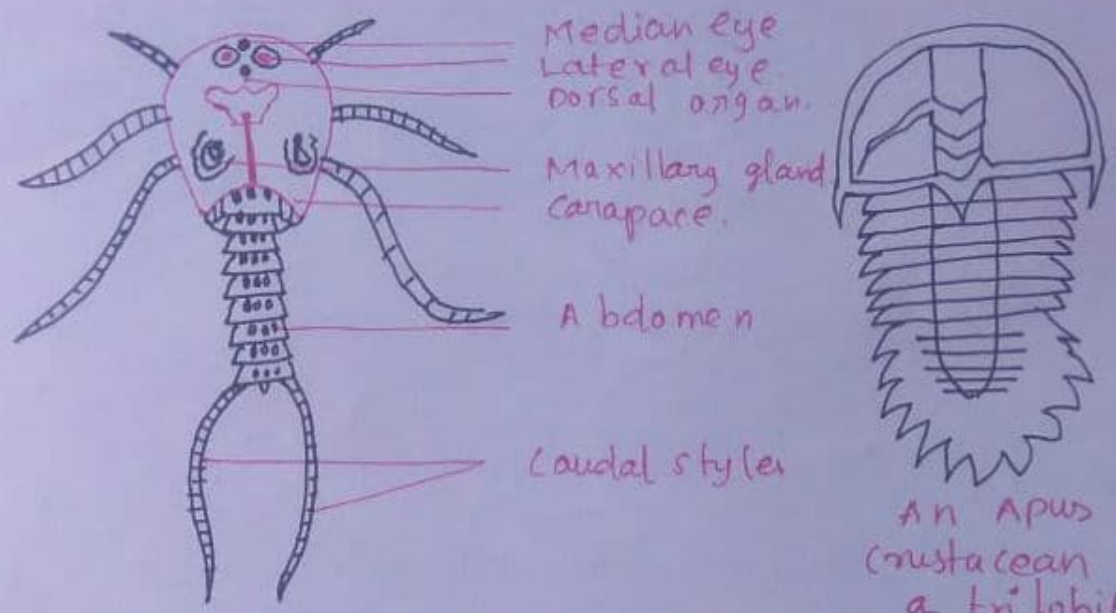 Median eye
Lateral eye.
Dorsal organ.
Maxillary gland
Carapace.
Abdomen
Caudal styles
An Apus
Crustacean
a trilobi